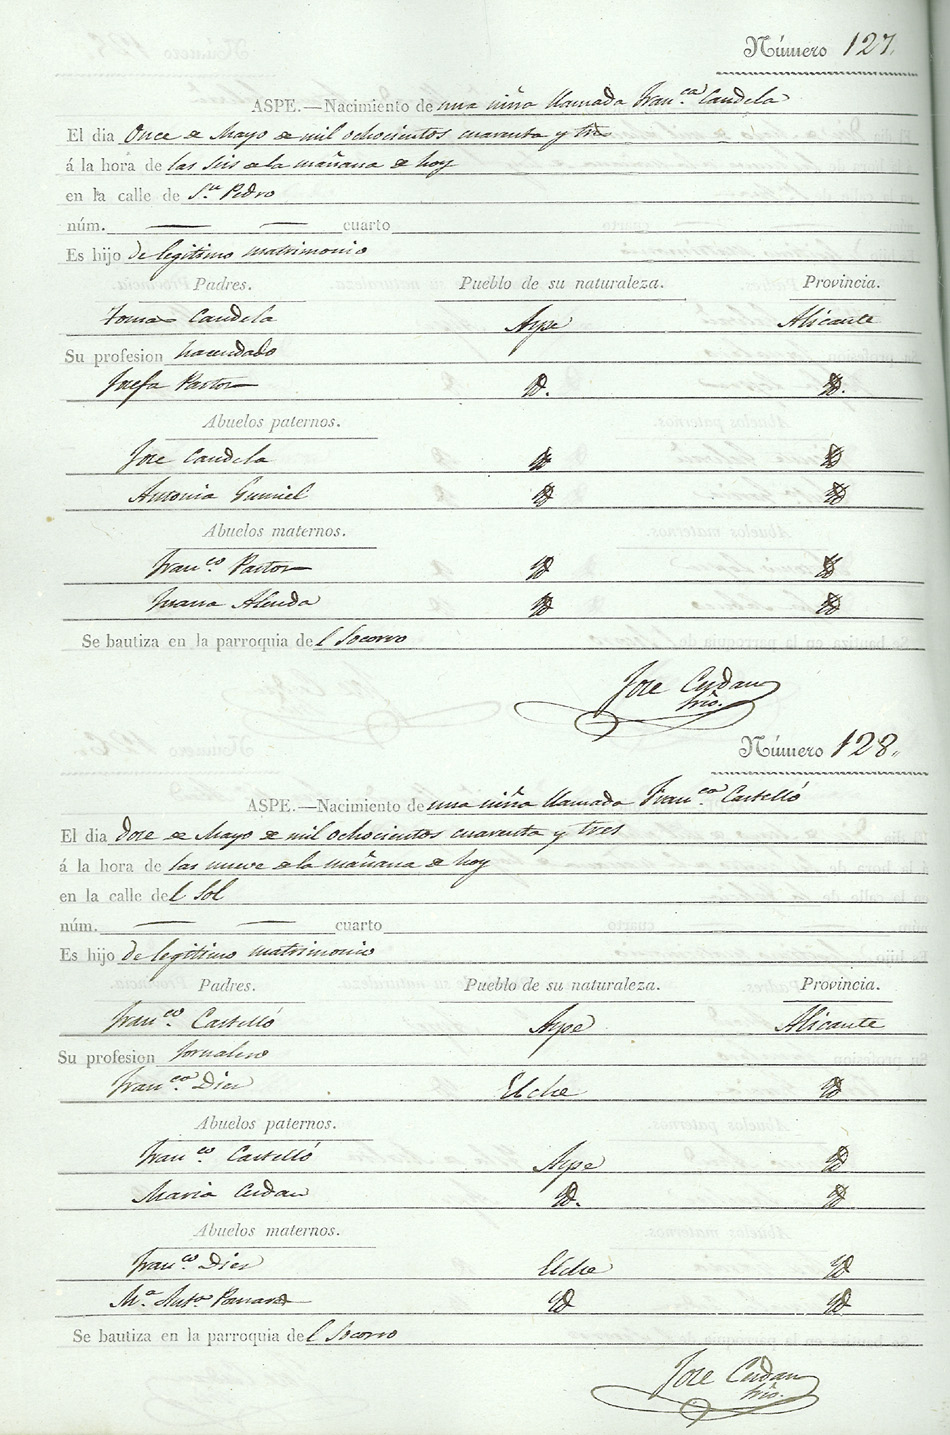 Número 127.
ASPE.—Nacimiento de una niña llamada Fran.ca Candela
El dia Once de Mayo de mil ochocientos cuarenta y tres
á la hora de las seis de la mañana de hoy
en la calle de Sn. Pedro
núm. — — cuarto
Es hijo de legitimo matrimonio
Padres. Pueblo de su naturaleza. Provincia.
Tomas Candela Aspe Alicante
Su profesion hacendado
Josefa Pastor id. id.
Abuelos paternos.
Jose Candela id. id.
Antonia Gumiel id. id.
Abuelos maternos.
Fran.co Pastor id. id.
Juana Alenda id. id.
Se bautiza en la parroquia del Socorro
Jose Cerdan
Srio.
Número 128.
ASPE.—Nacimiento de una niña llamada Fran.ca Castelló
El dia doce de Mayo de mil ochocientos cuarenta y tres
á la hora de las nueve de la mañana de hoy
en la calle del Sol
núm. — — cuarto
Es hijo de legitimo matrimonio
Padres. Pueblo de su naturaleza. Provincia.
Fran.co Castelló Aspe Alicante
Su profesion Jornalero
Fran.ca Dies Elche id.
Abuelos paternos.
Fran.co Castelló Aspe id.
Maria Cerdan id. id.
Abuelos maternos.
Fran.co Dies Elche id.
M.a Ant.a id. id.
Se bautiza en la parroquia del Socorro
Jose Cerdan
Srio.